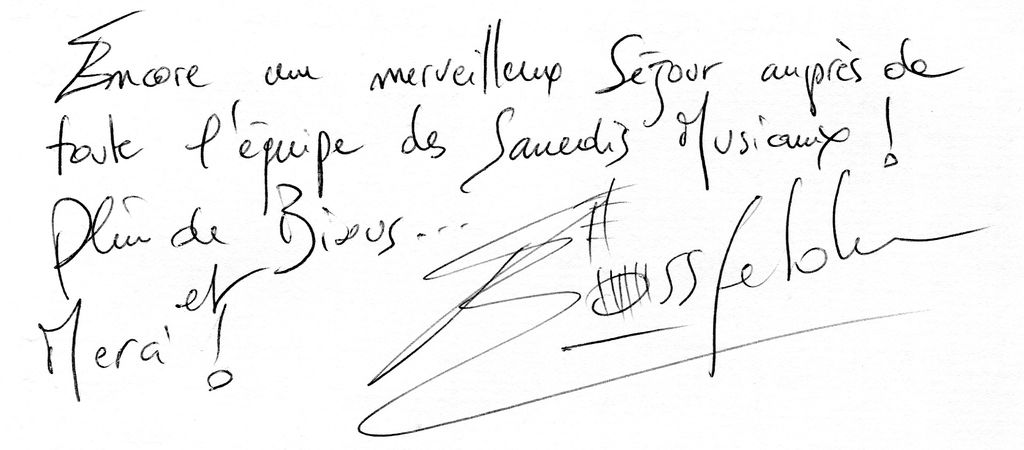 Encore un merveilleux Séjour auprès de
toute l'équipe des Samedis Musicaux !
Plein de Bisous...
et
Merci !